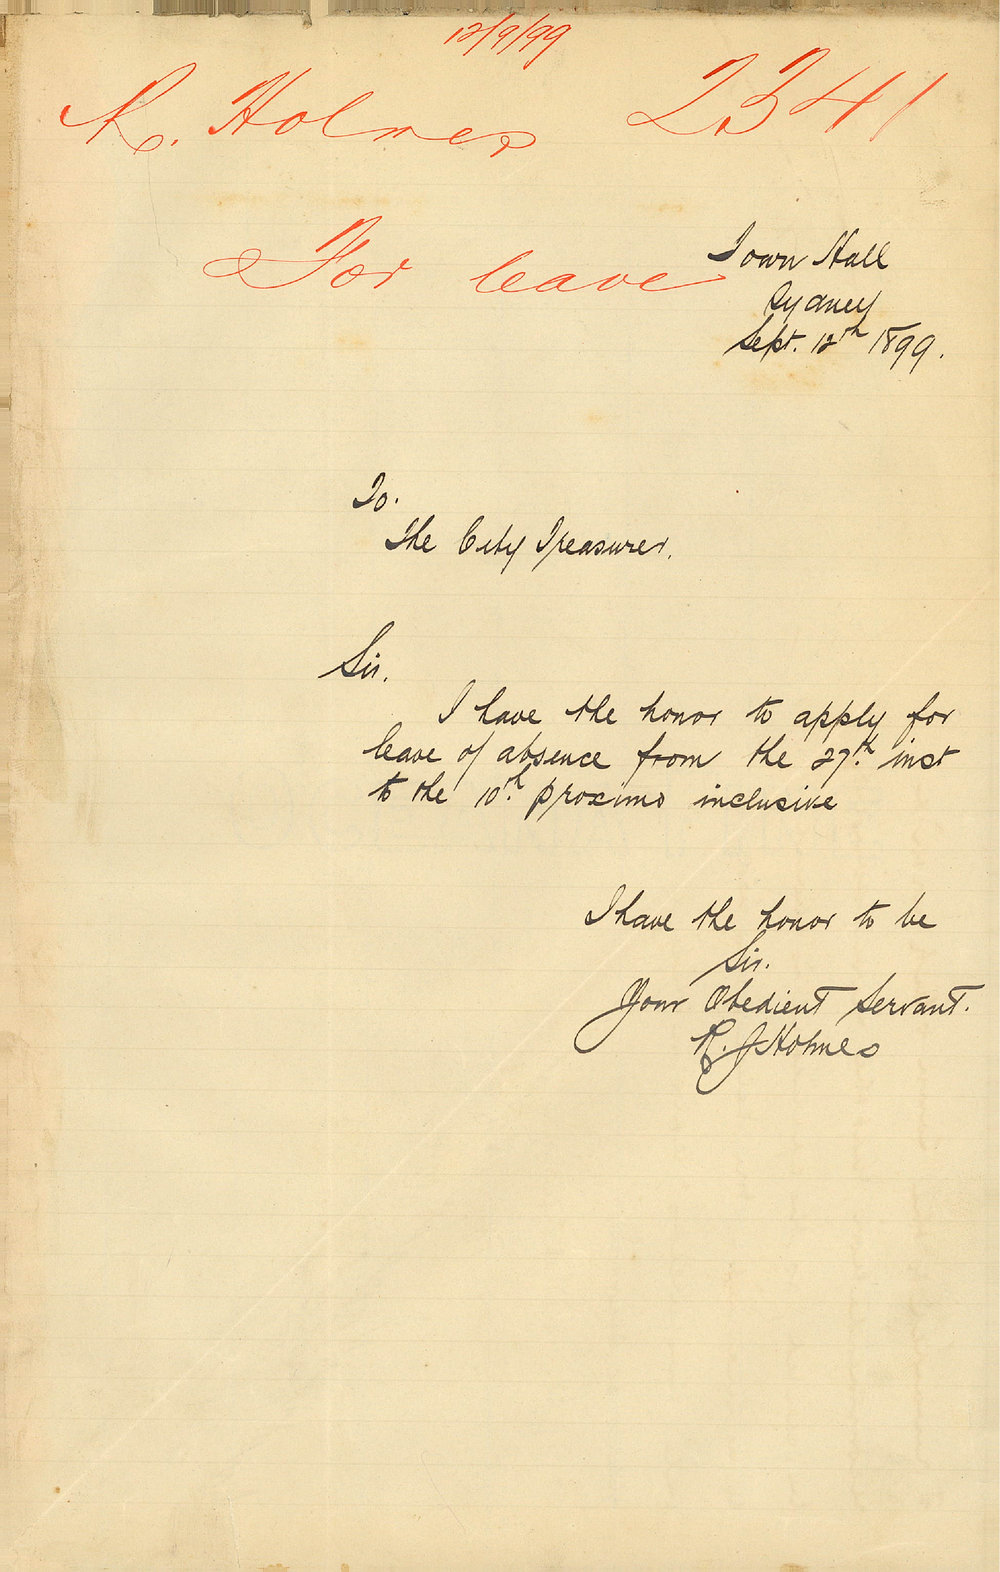 12/9/99
R. Holmes 2341
For leave
Town Hall
Sydney
Sept. 12th 1899.
To.
The City Treasurer.
Sir.
I have the honor to apply for
leave of absence from the 27th. inst
to the 10th. proximo inclusive
I have the honor to be
Sir.
Your Obedient Servant.
R. J Holmes